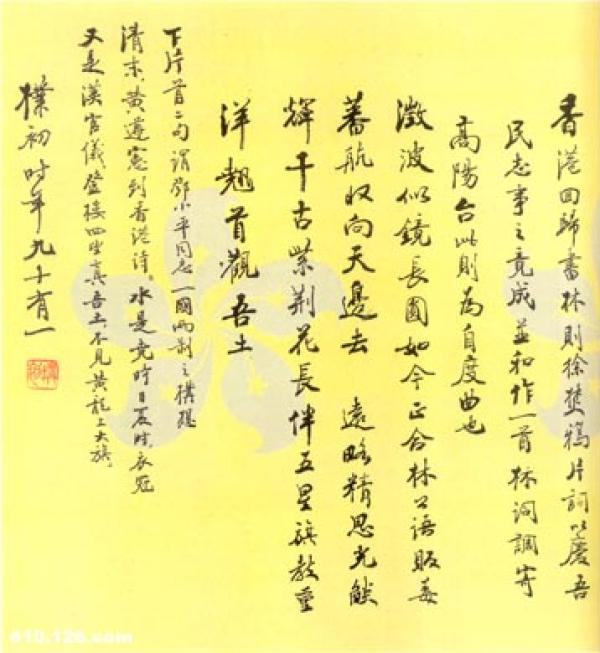 香港回歸書林則徐焚鴉片詞以慶吾
民志事之竟成並和作一首林詞調寄
高陽台此則為自度曲也
澂波似鏡長圓如今正合林公語販毒
蕃航收向天邊去 遠略精思光燄
輝千古紫荊花長伴五星旗教重
洋翹首觀吾土
下片首二句謂鄧小平同志一國兩制之構想
清末黃遵憲到香港詩。水是堯時日夏時衣冠
又是漢官儀登樓四望真吾土不見黃龍上大旗。
樸初時年九十有一
610.126.com